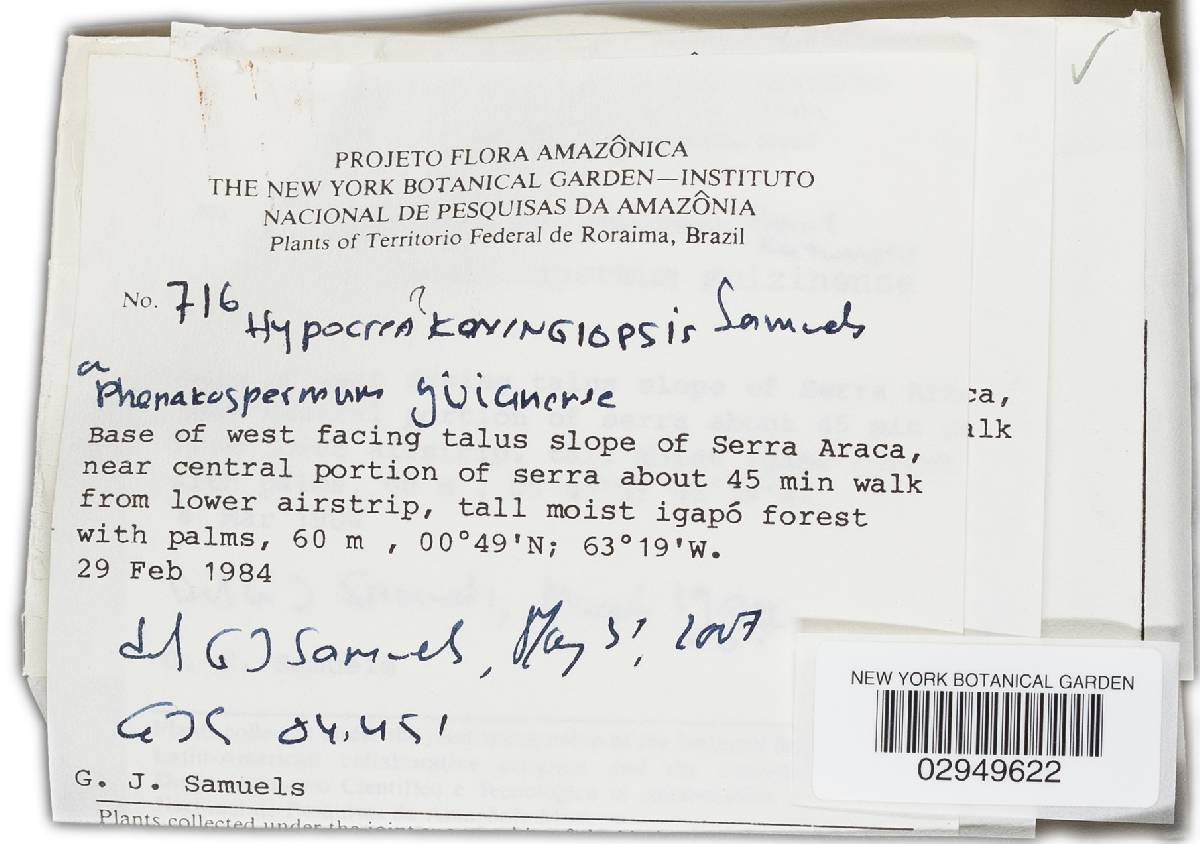 PROJETO FLORA AMAZÔNICA
THE NEW YORK BOTANICAL GARDEN—INSTITUTO
NACIONAL DE PESQUISAS DA AMAZÔNIA
Plants of Territorio Federal de Roraima, Brazil
No. 716 Hypocrea ? KONINGIOPSIS Samuels
on Phenakospermum güianense
Base of west facing talus slope of Serra Araca,
near central portion of serra about 45 min walk
from lower airstrip, tall moist igapó forest
with palms, 60 m , 00°49'N; 63°19'W.
29 Feb 1984
ca,
alk
det GJ Samuels, May 31, 2007
GJS 84.451
G. J. Samuels
Plants collected under the joint
NEW YORK BOTANICAL GARDEN
02949622